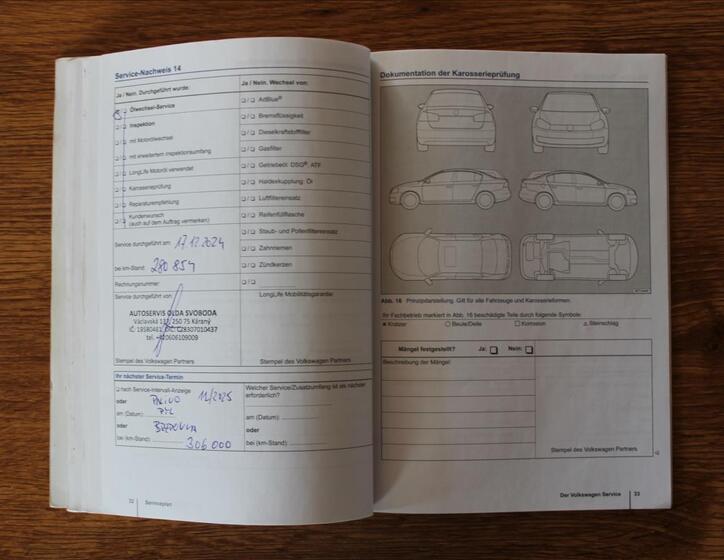 Service-Nachweis 14
Ja / Nein. Durchgeführt wurde:
Ölwechsel-Service
Inspektion
mit Motorölwechsel
mit erweitertem Inspektionsumfang
LongLife Motoröl verwendet
Karosserieprüfung
Reparaturempfehlung
Kundenwunsch
(auch auf dem Auftrag vermerken)
Service durchgeführt am: 17.12.2024
bei km-Stand: 280 854
Rechnungsnummer:
Service durchgeführt von:
AUTOSERVIS OLDA SVOBODA
Václavská 117, 250 75 Káraný
IČ: 19580481, DIČ: CZ8307010437
tel. +420606109009
Stempel des Volkswagen Partners
Ja / Nein. Wechsel von:
AdBlue®
Bremsflüssigkeit
Dieselkraftstofffilter
Gasfilter
Getriebeöl: DSG®, ATF
Haldexkupplung: Öl
Luftfiltereinsatz
Reifenfüllflasche
Staub- und Pollenfiltereinsatz
Zahnriemen
Zündkerzen
LongLife Mobilitätsgarantie:
Stempel des Volkswagen Partners
Ihr nächster Service-Termin
nach Service-Intervall-Anzeige
oder PALIVO 11/2025
am (Datum): PYL
oder BRZDOVKA
bei (km-Stand): 306 000
Welcher Service/Zusatzumfang ist als nächster
erforderlich?
am (Datum):
oder
bei (km-Stand):
32 Serviceplan
Dokumentation der Karosserieprüfung
Abb. 16 Prinzipdarstellung. Gilt für alle Fahrzeuge und Karosserieformen.
Ihr Fachbetrieb markiert in Abb. 16 beschädigte Teile durch folgende Symbole:
× Kratzer ○ Beule/Delle □ Korrosion △ Steinschlag
Mängel festgestellt? Ja: Nein:
Beschreibung der Mängel:
Stempel des Volkswagen Partners
Der Volkswagen Service 33